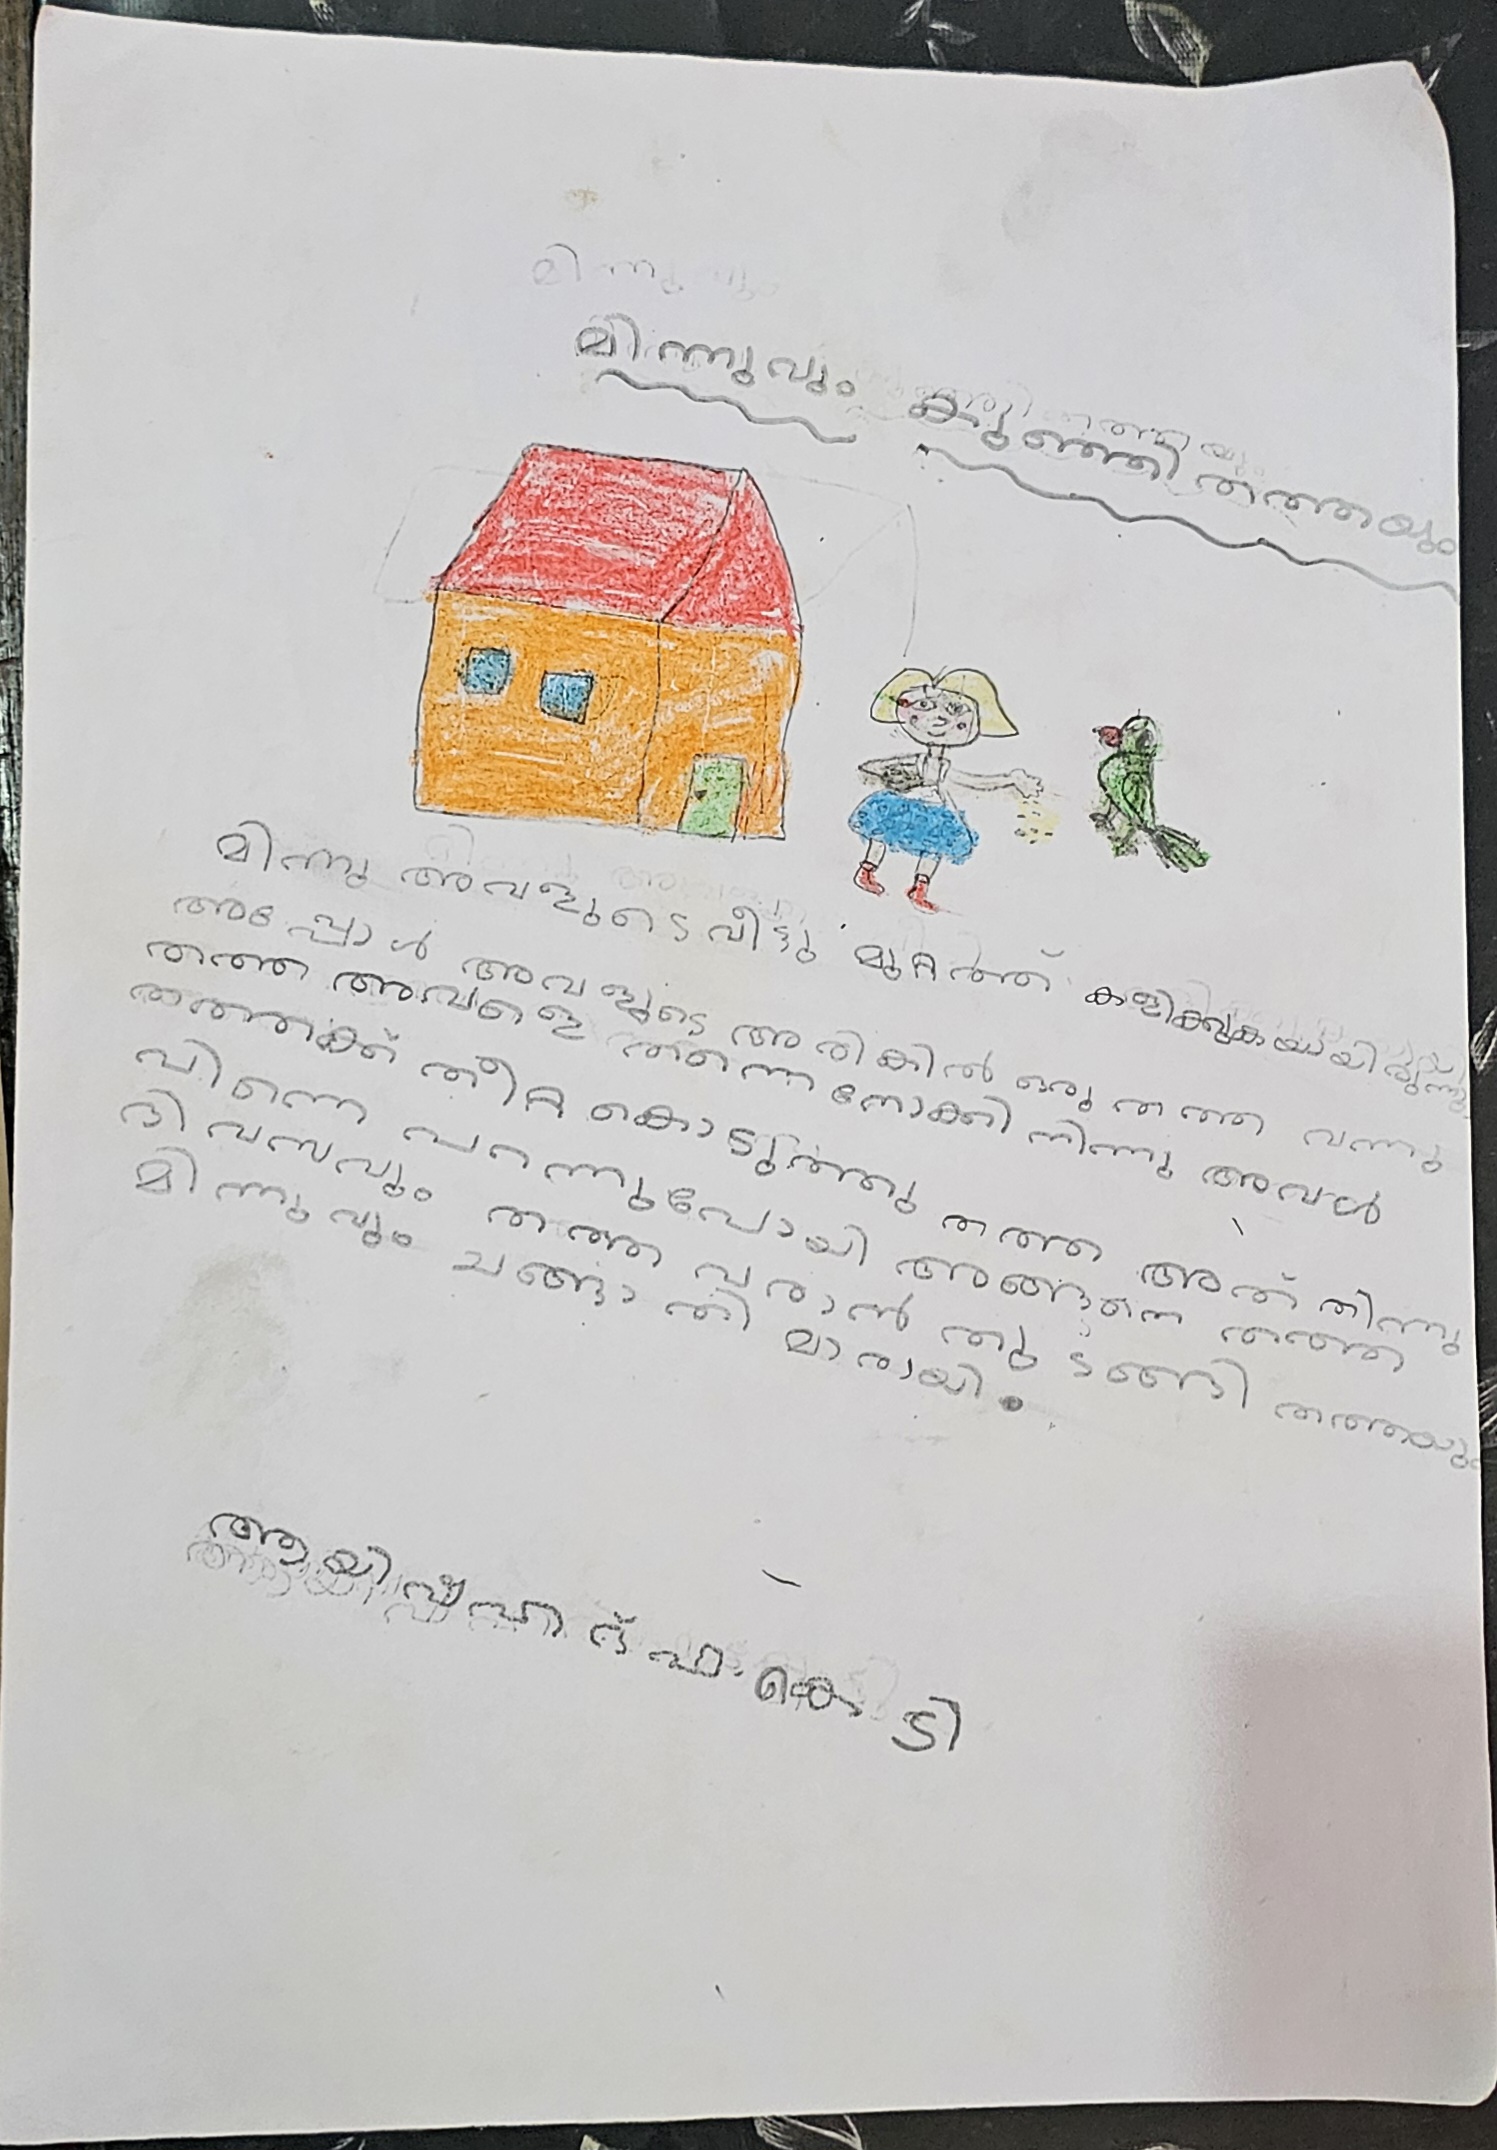 മിന്നുവും കുഞ്ഞി തത്തയും
മിന്നു അവളുടെ വീട്ടു മുറ്റത്ത് കളിക്കുകയായിരുന്നു
അപ്പോൾ അവളുടെ അരികിൽ ഒരു തത്ത വന്നു
തത്ത അവളെ തന്നെ നോക്കി നിന്നു അവൾ
തത്തക്ക് തീറ്റ കൊടുത്തു തത്ത അത് തിന്നു
പിന്നെ പറന്നുപോയി അങ്ങനെ തത്ത
ദിവസവും തത്ത വരാൻ തുടങ്ങി തത്തയും
മിന്നുവും ചങ്ങാതി മാരായി.
കെ ടി